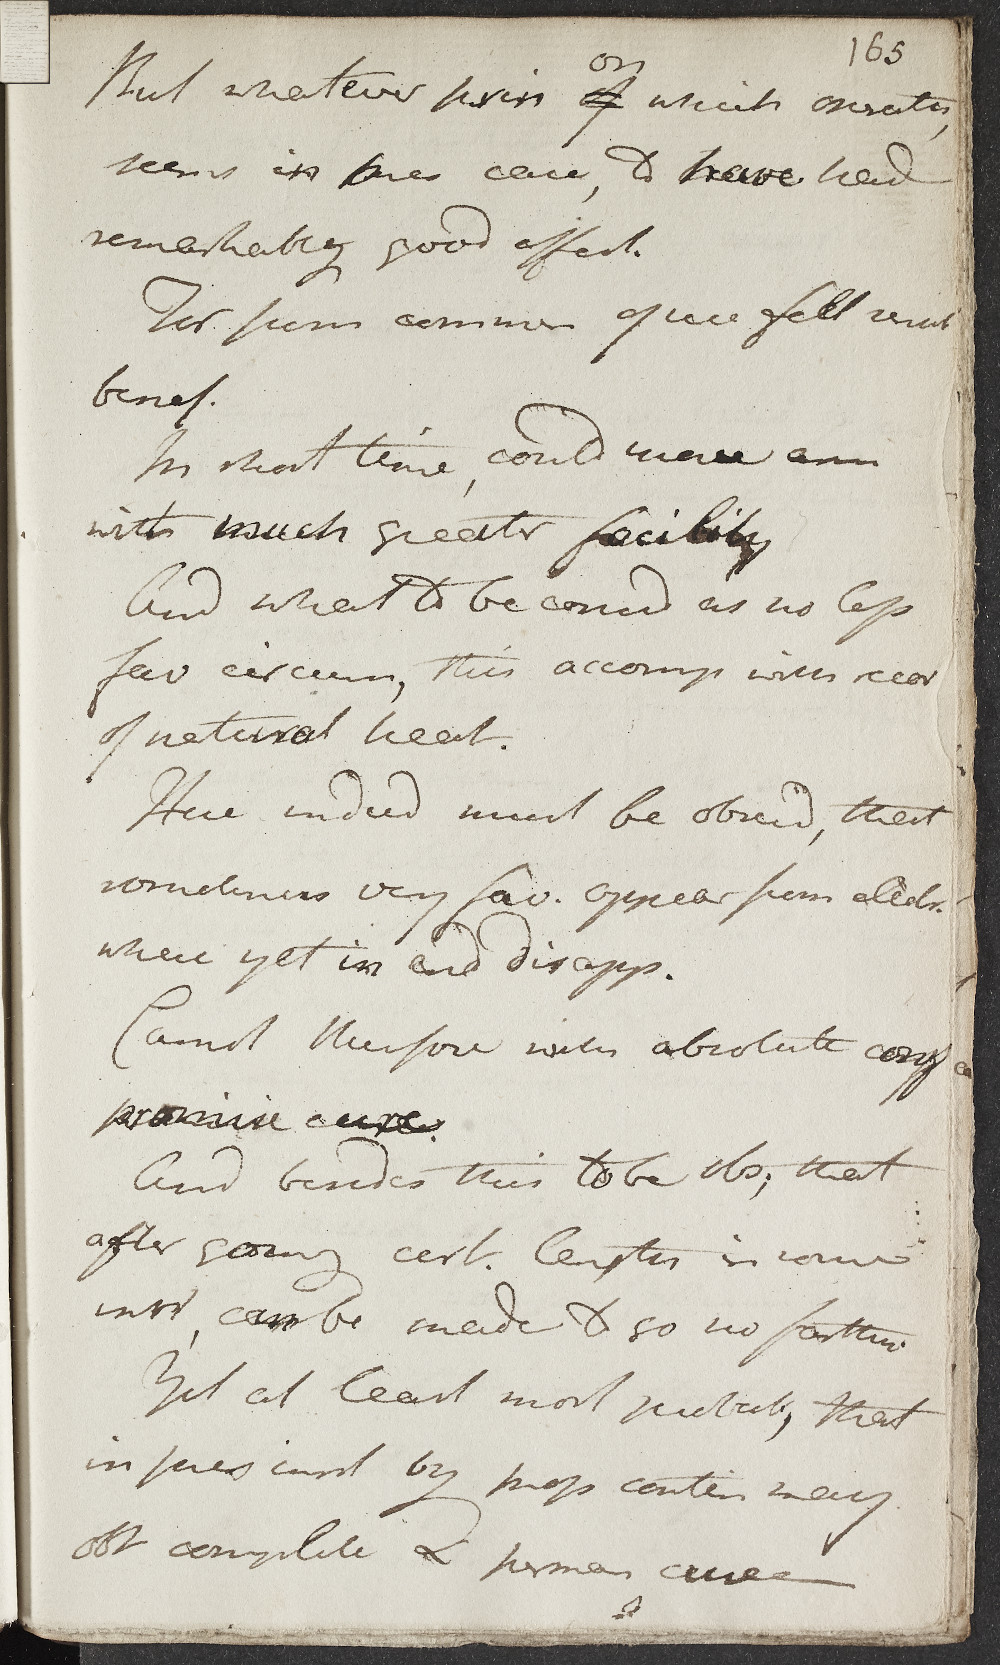 165
But whatever prin on which operates,
seems in pres case, to have had
remarkably good effect.
For from common opiate felt
benef.
In short time, could move arm
with much greater facility
And what to be consid as no less
fav circum, this accomp with recov
of natural heat.
Here indeed must be observd, that
sometimes very fav. appear from electr.
where yet in end disapp.
Cannot therefore with absolute conf
promise cure.
And besides this to be obs, that
after going cert. lengths in some
inst, can be made to go no farther
Yet at least most probab, that
in pres inst by prop contin may
obt complete & perman cure